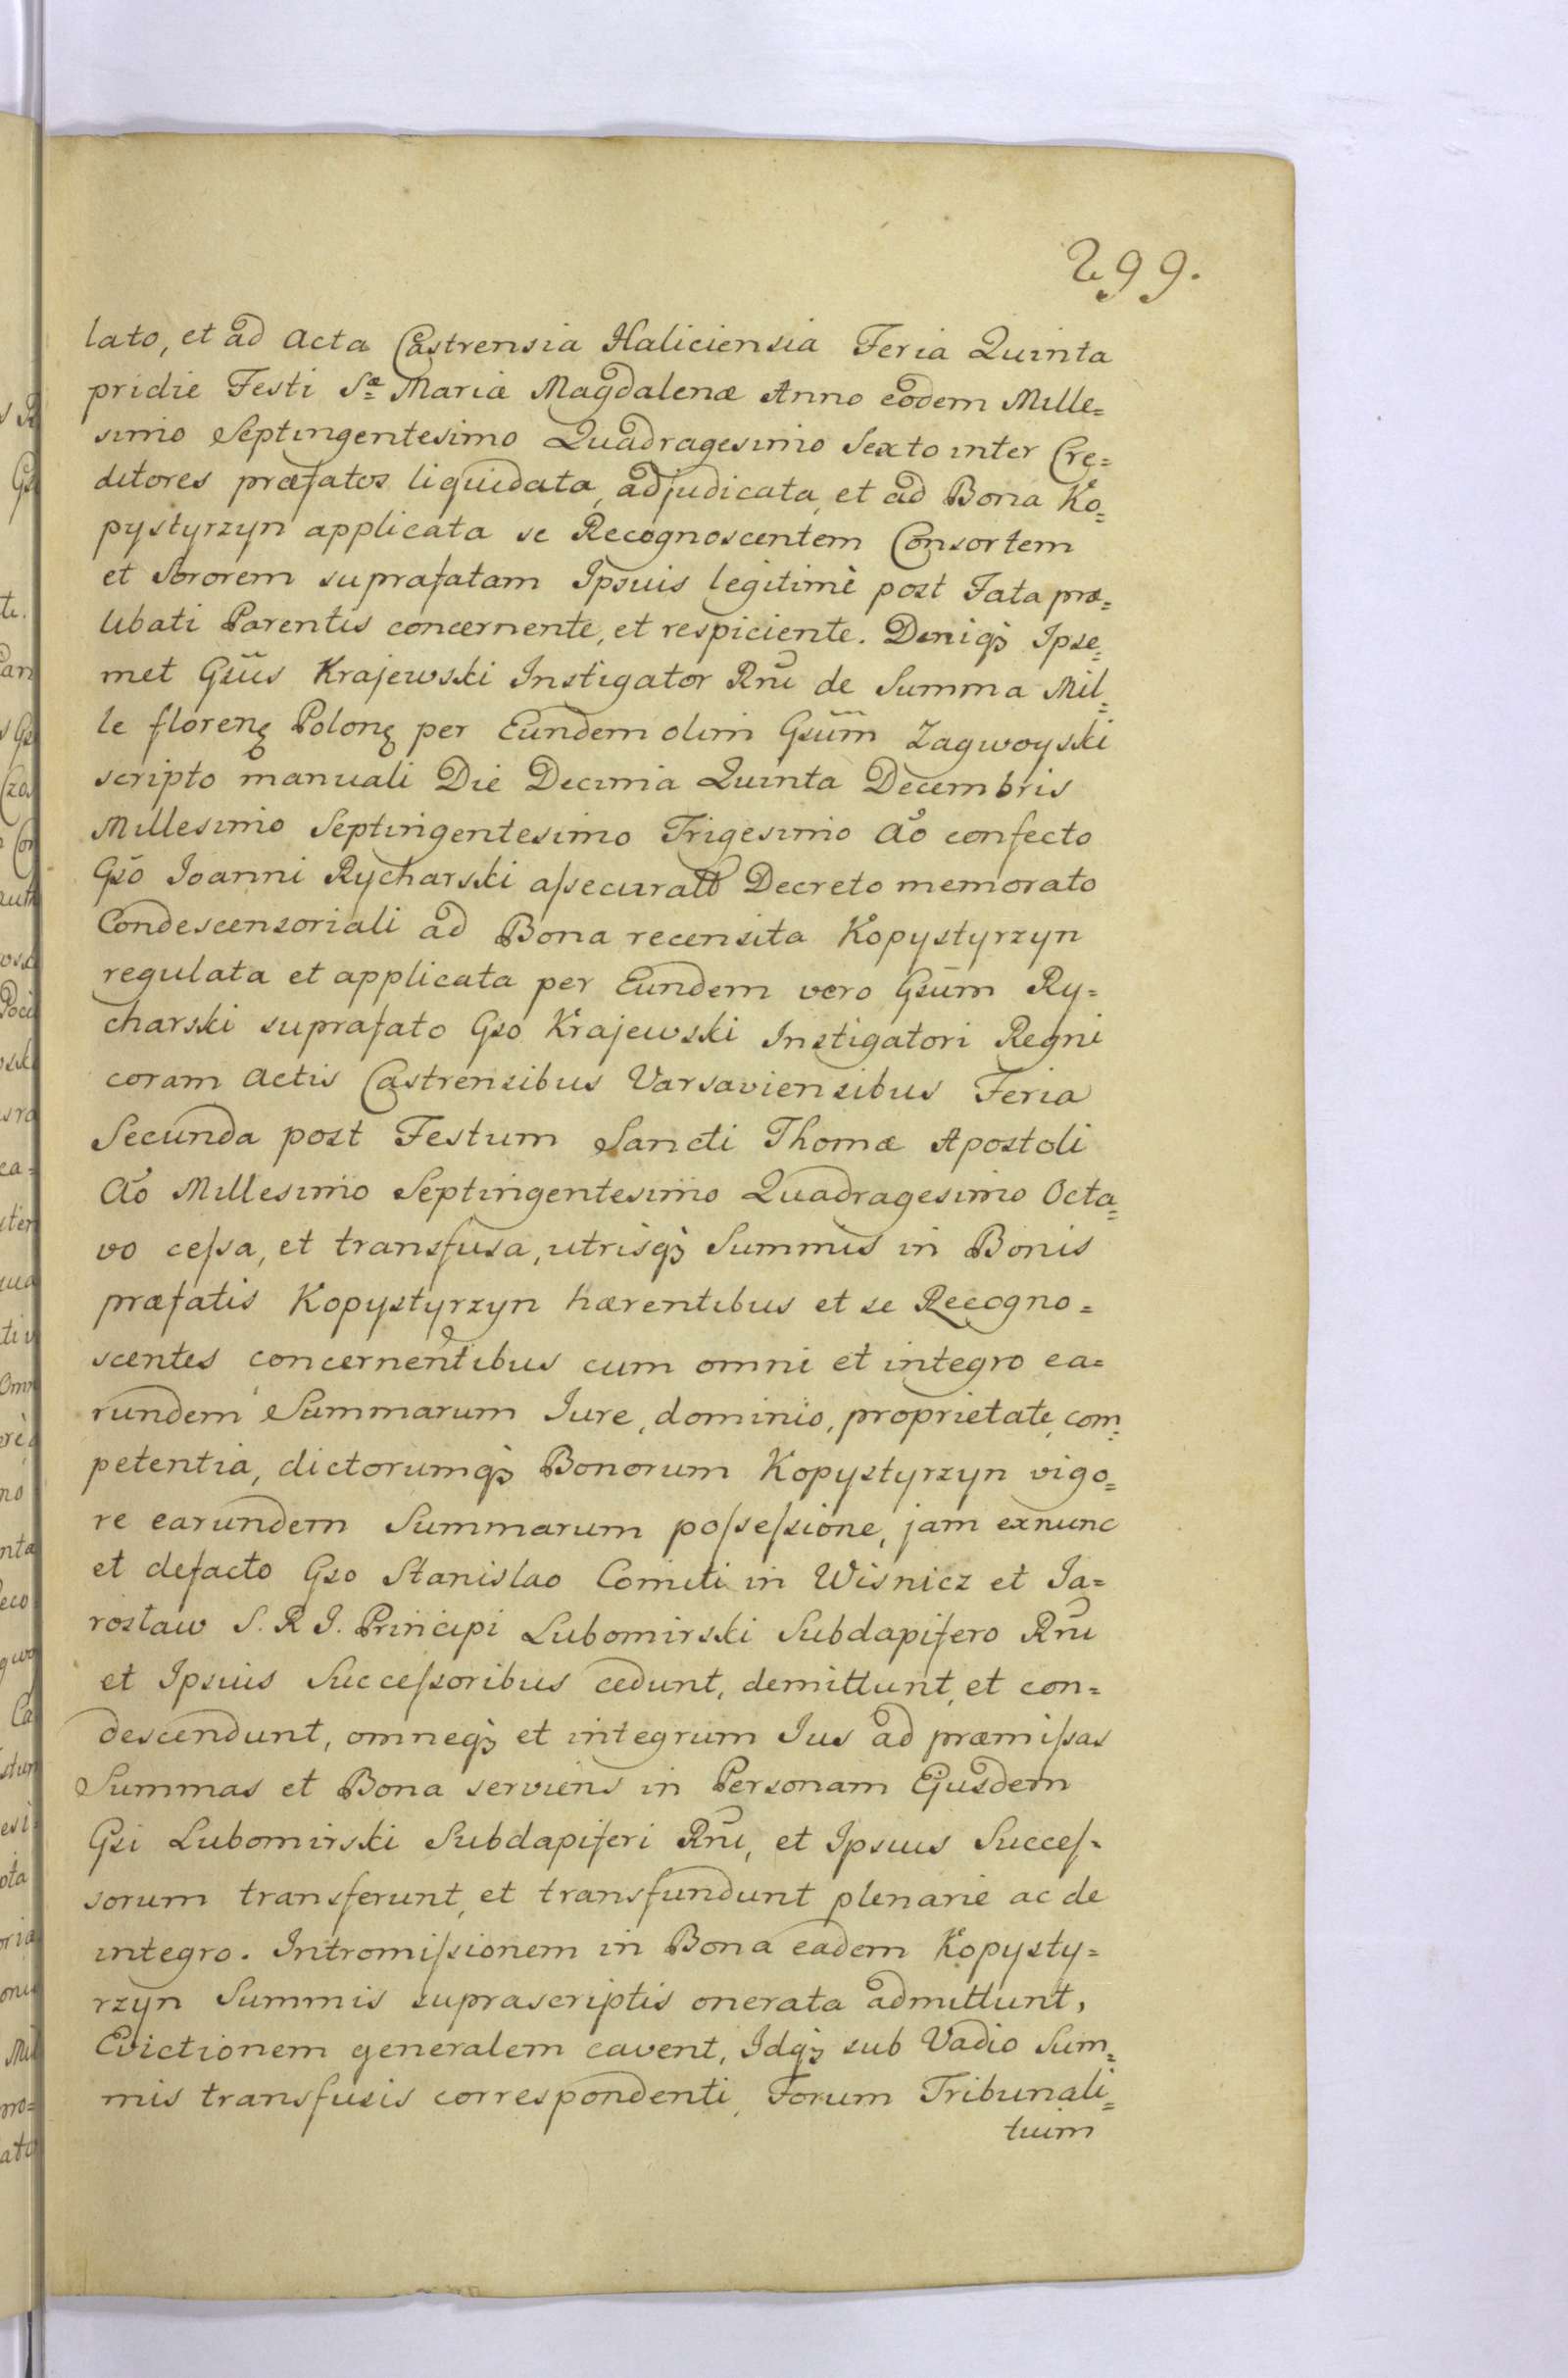 299.
lato, et ad Acta Castrensia Haliciensia Feria Quinta
pridie Festi Sæ= Mariæ Magdalenæ Anno eodem Mille=
simo Septingentesimo Quadragesimo Sexto inter Cre=
ditores præfatos liquidata, adjudicata, et ad Bona Ko=
pystyrzyn applicata se Recognoscentem Consortem
et Sororem suprafatam Ipsius legitimè post Fata præ=
libati Parentis concernente, et respiciente. Deniqꝫ Ipse=
met Gsūs Krajewski Instigator Rnī de Summa Mil=
le florenꝫ Polonꝫ per Eundem olim Gsūm Zagwoyski
scripto manuali Die Decima Quinta Decembris
Millesimo Septingentesimo Trigesimo Aō confecto
Gsō Ioanni Rycharski aſsecurata Decreto memorato
Condescensoriali ad Bona recensita Kopystyrzyn
regulata et applicata per Eundem vero Gsūm Ry=
charski suprafato Gso Krajewski Instigatori Regni
coram Actis Castrensibus Varsaviensibus Feria
Secunda post Festum Sancti Thomæ Apostoli
Aō Millesimo Septingentesimo Quadragesimo Octa=
vo ceſsa, et transfusa, utrisqꝫ Summis in Bonis
præfatis Kopystyrzyn hærentibus et se Recogno=
scentes concernentibus cum omni et integro ea=
rundem Summarum Iure, dominio, proprietate, com=
petentia, dictorumqꝫ Bonorum Kopystyrzyn vigo=
re earundem Summarum poſseſsione, jam exnunc
et defacto Gso Stanislao Comiti in Wisnicz et Ja=
rosław S. R I. Principi Lubomirski Subdapifero Rnī
et Ipsius Succeſsoribus cedunt, demittunt, et con=
descendunt, omneqꝫ et integrum Ius ad præmiſsas
Summas et Bona serviens in Personam Ejusdem
Gsi Lubomirski Subdapiferi Rnī, et Ipsius Succeſ=
sorum transferunt, et transfundunt plenarie ac de
integro. Intromiſsionem in Bona eadem Kopysty=
rzyn Summis suprascriptis onerata admittunt,
Evictionem generalem cavent, Idqꝫ sub Vadio Sum=
mis transfusis correspondenti, Forum Tribunali=
tium